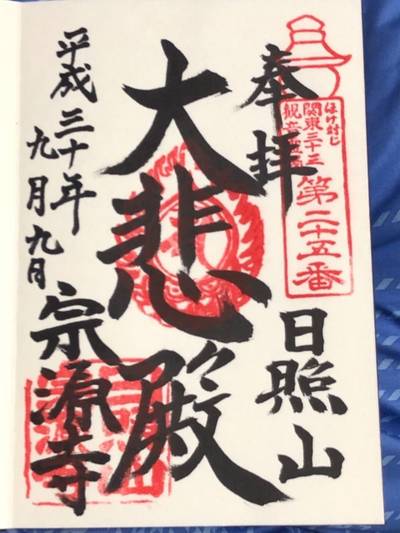 奉拝
日照山
ほけ封じ
関東三十三
観音霊場
第二十五番
大悲殿
平成三十年
九月九日
宗源寺